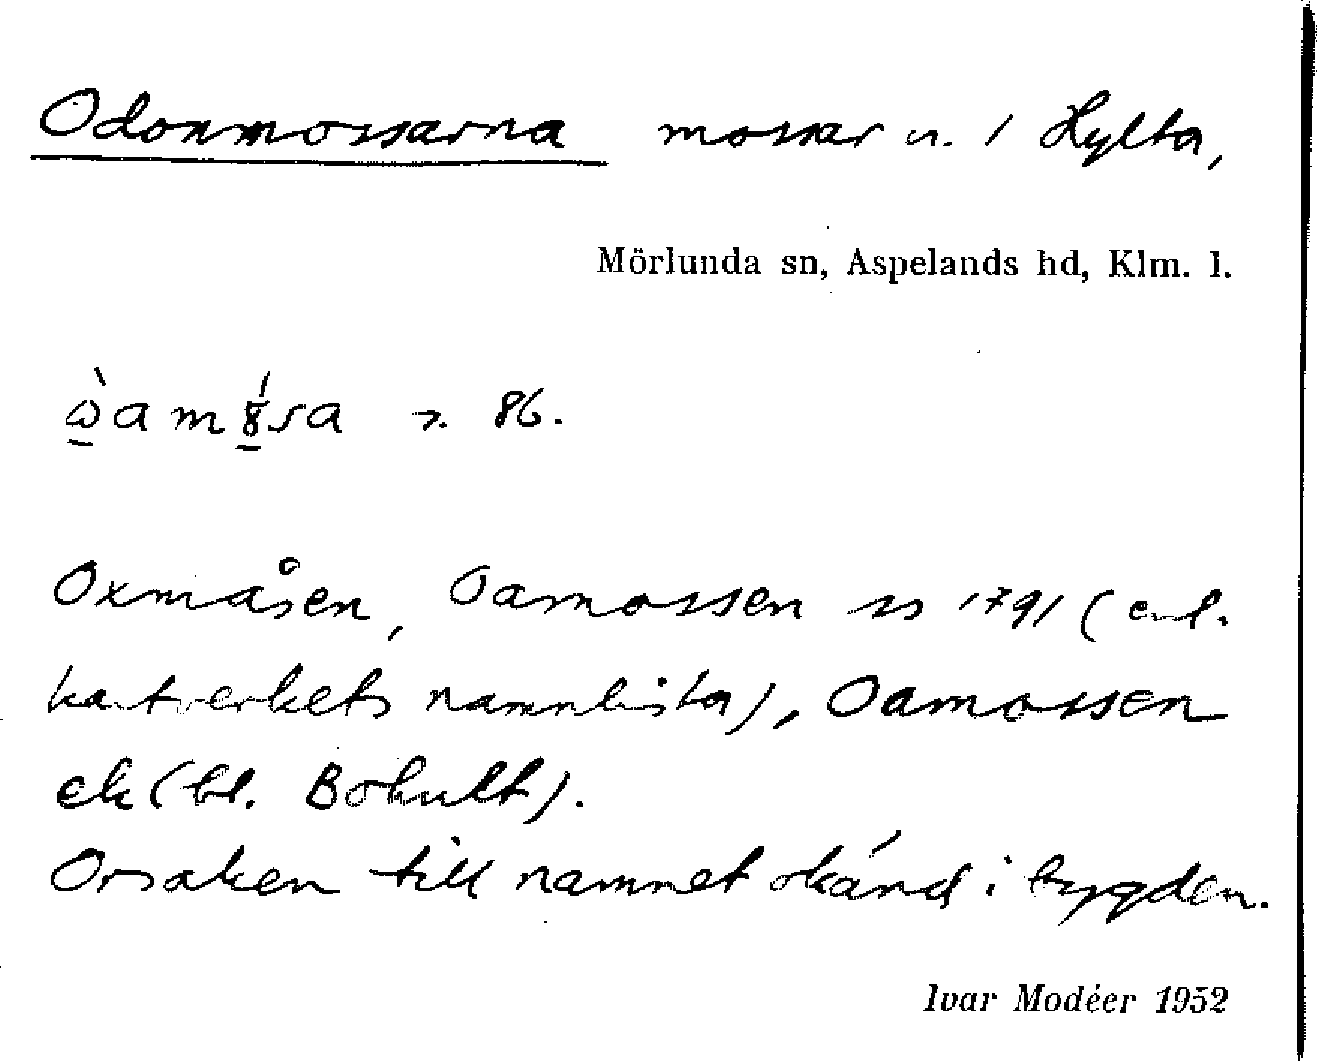 Odonmossarna mossar u. / Hylta,
Mörlunda sn, Aspelands hd, Klm. l.
86.
Oxmåsen, Oamossen ss 1791 (enl.
kartverkets namnlista), Oamossen
ek (bl. Bohult).
Orsaken till namnet okänd i bygden.
Ivar Modéer 1952